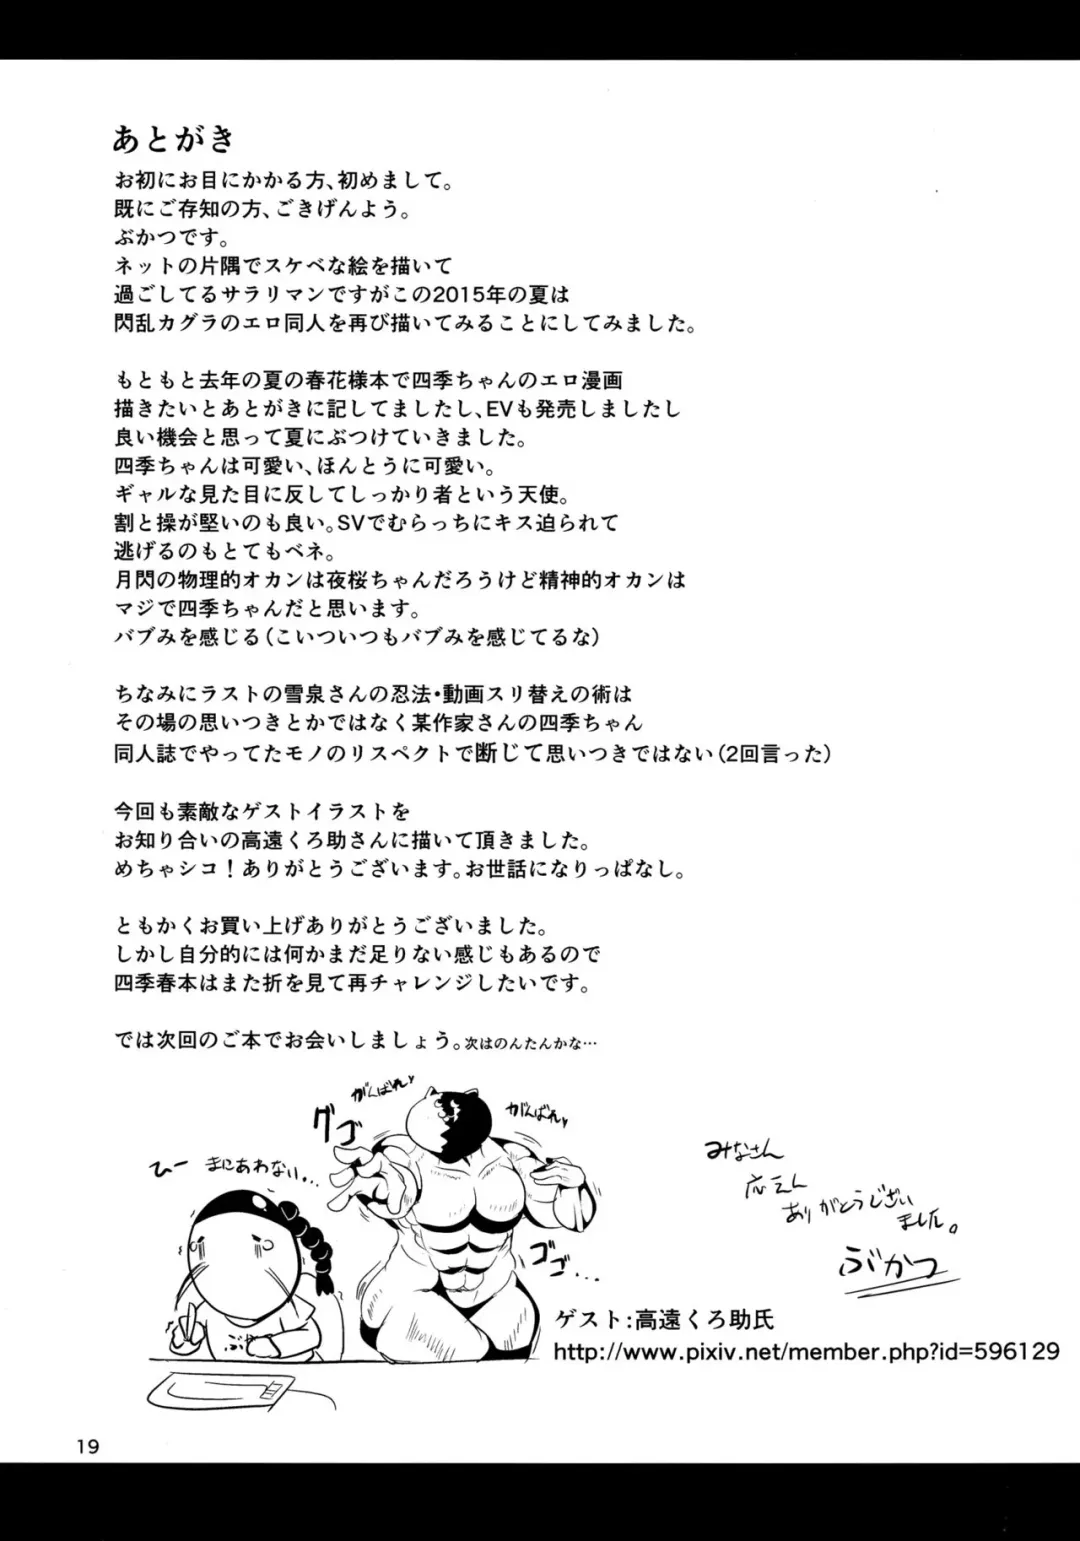 あとがき
お初にお目にかかる方、初めまして。
既にご存知の方、ごきげんよう。
ぶかつです。
ネットの片隅でスケベな絵を描いて
過ごしてるサラリマンですがこの2015年の夏は
閃乱カグラのエロ同人を再び描いてみることにしてみました。
もともと去年の夏の春花様本で四季ちゃんのエロ漫画
描きたいとあとがきに記してましたし、EVも発売しましたし
良い機会と思って夏にぶつけていきました。
四季ちゃんは可愛い、ほんとうに可愛い。
ギャルな見た目に反してしっかり者という天使。
割と操が堅いのも良い。SVでむらっちにキス迫られて
逃げるのもとてもベネ。
月閃の物理的オカンは夜桜ちゃんだろうけど精神的オカンは
マジで四季ちゃんだと思います。
バブみを感じる（こいついつもバブみを感じてるな）
ちなみにラストの雪泉さんの忍法・動画スリ替えの術は
その場の思いつきとかではなく某作家さんの四季ちゃん
同人誌でやってたモノのリスペクトで断じて思いつきではない（2回言った）
今回も素敵なゲストイラストを
お知り合いの高遠くろ助さんに描いて頂きました。
めちゃシコ！ありがとうございます。お世話になりっぱなし。
ともかくお買い上げありがとうございました。
しかし自分的には何かまだ足りない感じもあるので
四季春本はまた折を見て再チャレンジしたいです。
では次回のご本でお会いしましょう。次はのんたんかな…
がんばれ♥
がんばれ♥
グゴ
ひー まにあわない...
ゴゴ...
ぶ
みなさん
応えん
ありがとうござい
ました。
ぶかつ
ゲスト：高遠くろ助氏
http://www.pixiv.net/member.php?id=596129
19